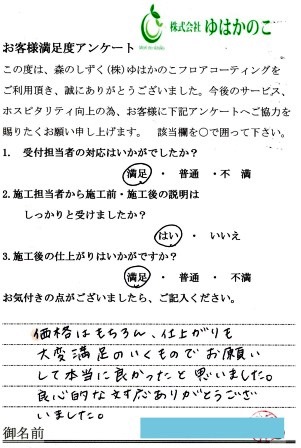 株式会社 ゆはかのこ
お客様満足度アンケート
この度は、森のしずく(株)ゆはかのこフロアコーティングを
ご利用頂き、誠にありがとうございました。今後のサービス、
ホスピタリティ向上の為、お客様に下記アンケートへご協力を
賜りたくお願い申し上げます。 該当欄を○で囲って下さい。
1. 受付担当者の対応はいかがでしたか?
満足 ・ 普通 ・不 満
2.施工担当者から施工前・施工後の説明は
しっかりと受けましたか?
はい ・ いいえ
3.施工後の仕上がりはいかがですか?
満足 ・ 普通 ・ 不満
お気付きの点がございましたら、ご記入ください。
価格はもちろん、仕上がりも
大変満足のいくものでお願い
して本当に良かったと思いました。
良心的な対応ありがとうござ
いました。
御名前